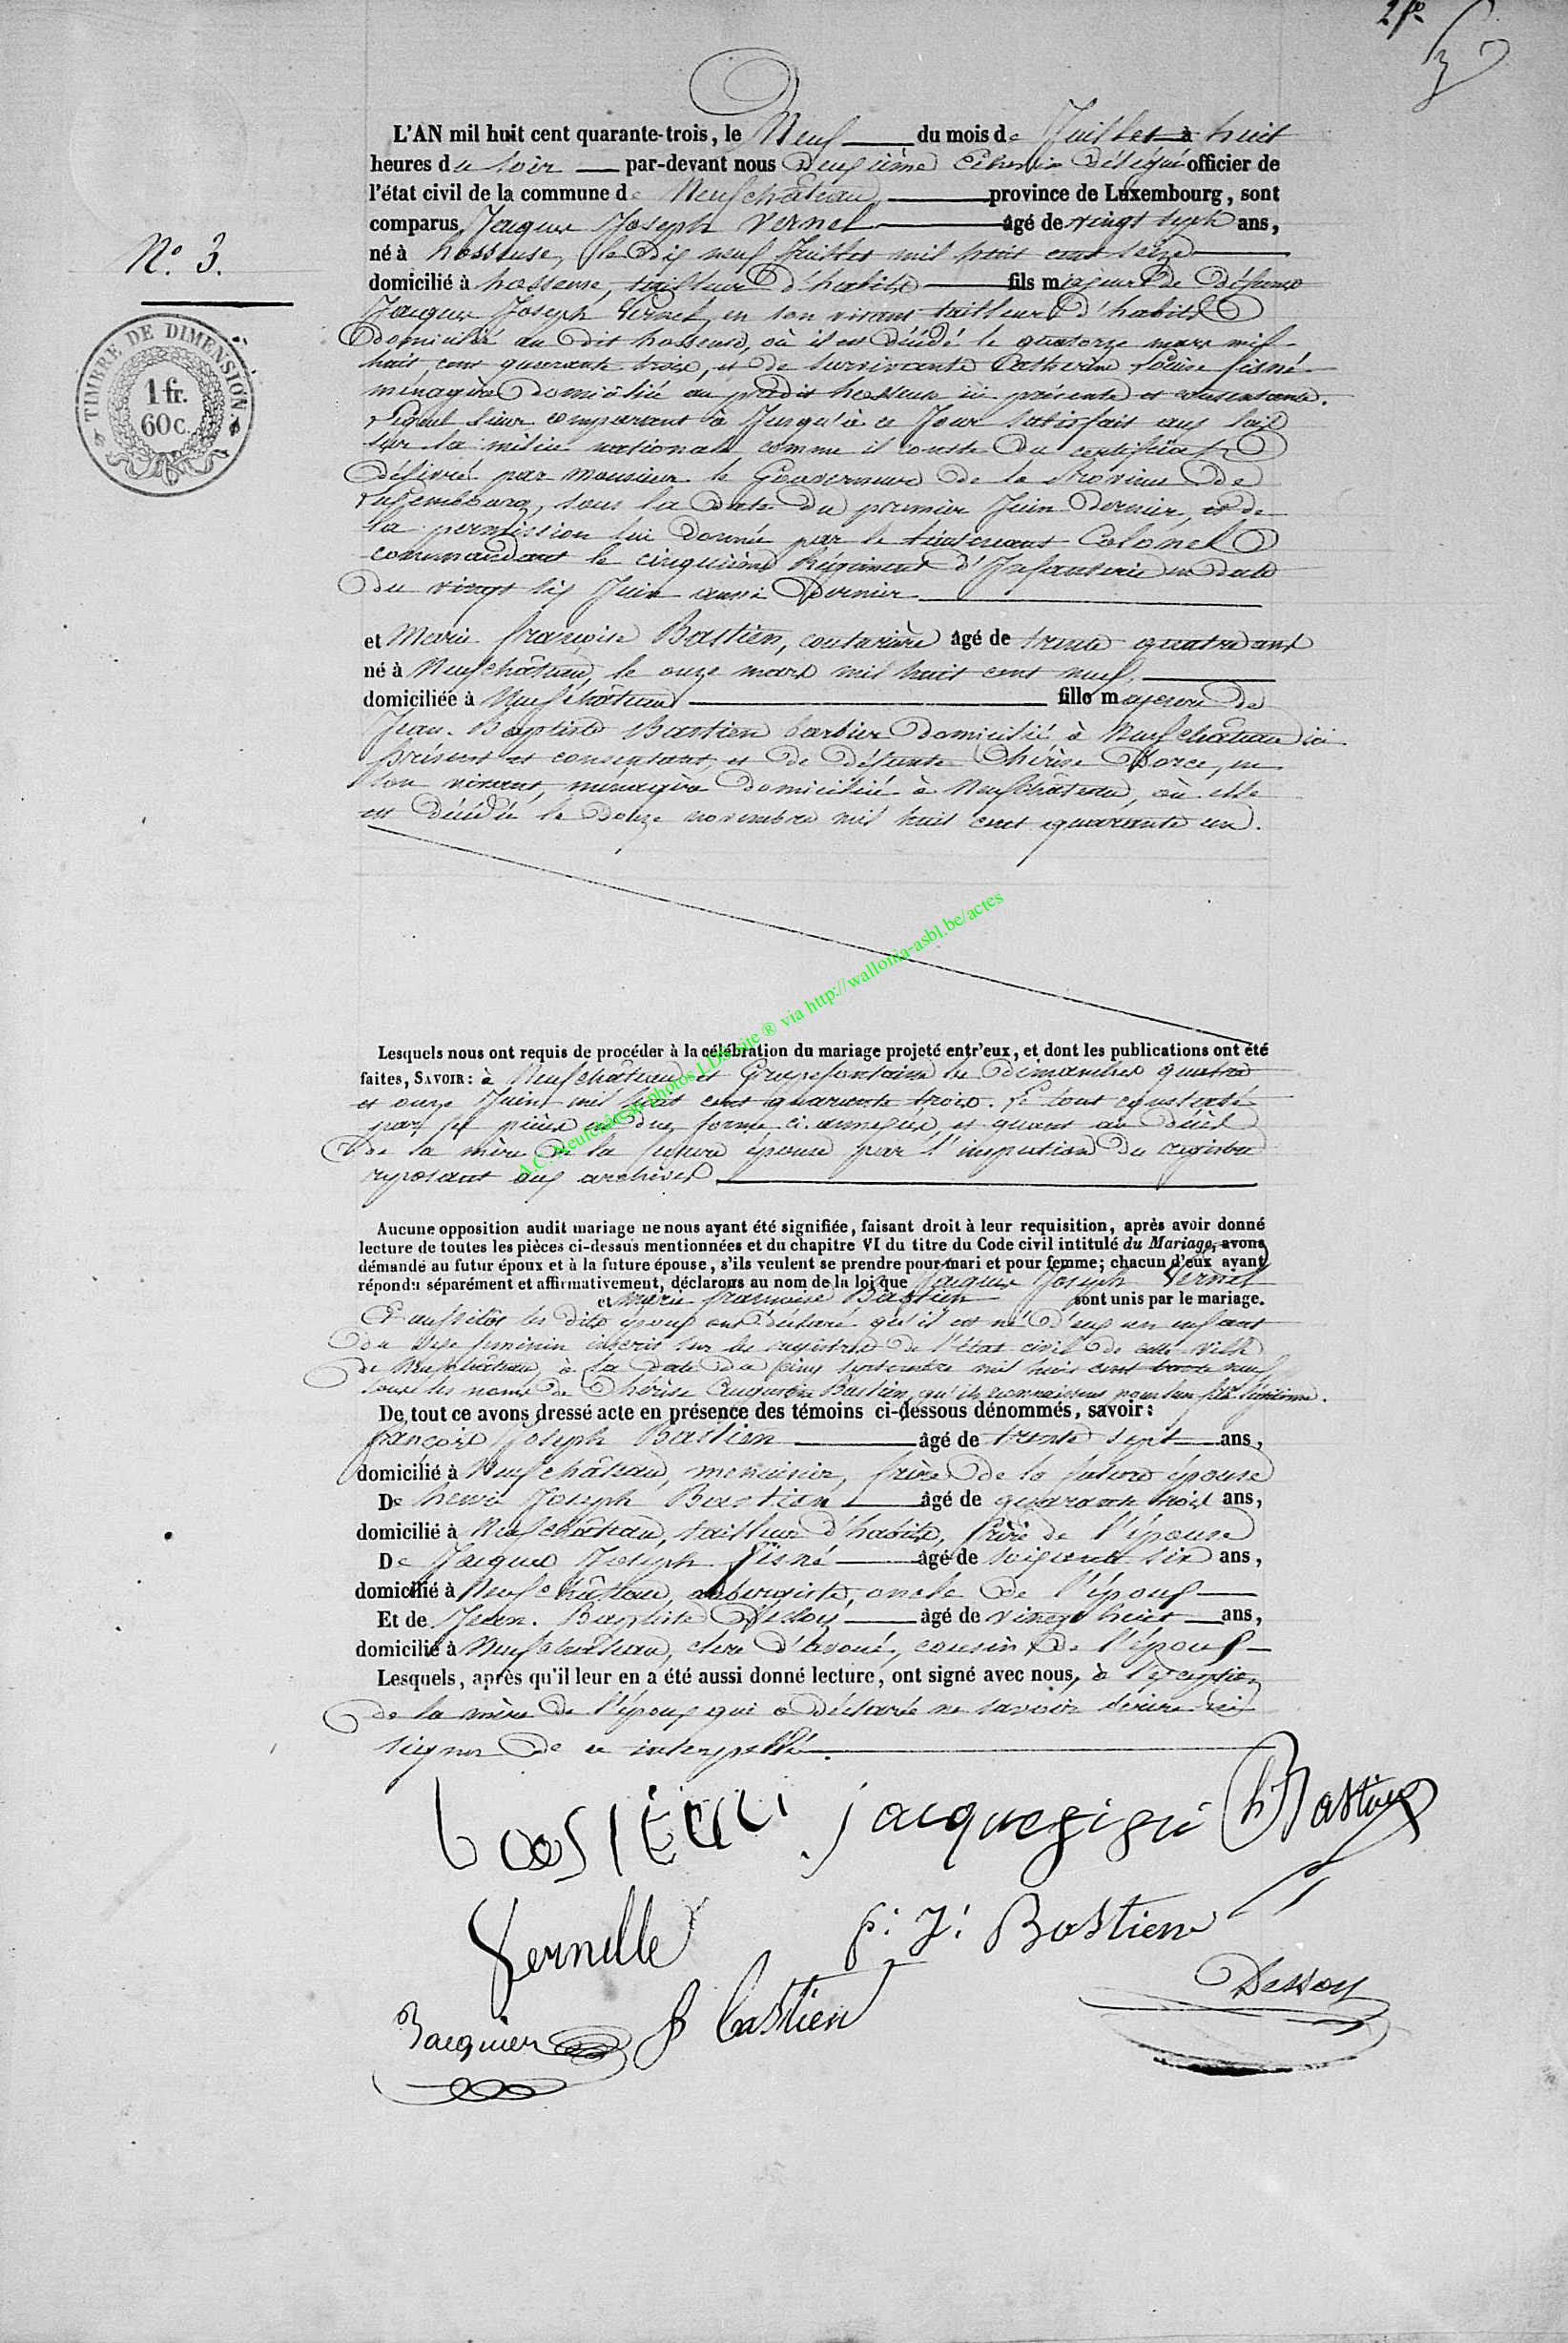 2 fo
3
L'AN mil huit cent quarante-trois, le Neuf du mois de Juillet à huit
heures du soir par-devant nous Deuxième Echevin Délégué officier de
l'état civil de la commune de Neufchâteau province de Luxembourg, sont
comparus Jacques Joseph Vernel âgé de vingt sept ans,
N.o 3.
né à hosseuse, le Dix neuf Juillet mil huit cent seize
domicilié à hosseuse, tailleur d'habits fils majeur de défunt
TIMBRE DE DIMENSION
1 fr.
60 c.
Jacques Joseph Vernel, en son vivant tailleur d'habits
Domicilié au dit hosseuse, où il est décédé le quatorze mars mil
huit cent quarante trois, et de survivante Catherine Louise Gisné
ménagère domiciliée au prédit hosseuse ici présente et consentante.
Lequel sieur comparant à Jusqu'à ce Jour satisfait aux lois
sur la milice nationale comme il conste du certificat
délivré par monsieur le Gouverneur de la Province de
Luxembourg, sous la date du premier Juin dernier, et de
la permission lui donnée par le lieutenant Colonel
commandant le cinquième Régiment d'Infanterie en date
du vingt six Juin aussi dernier
et Marie françoise Bastien, couturière âgé de trente quatre ans
né à Neufchâteau, le onze mars mil huit cent neuf,
domiciliée à Neufchâteau fille majeure de
Jean-Baptiste Bastien barbier domicilié à Neufchâteau ici
présent et consentant, et de défunte Thérèse Dorce, en
son vivant, ménagère domiciliée à Neufchâteau, où elle
est décédée le douze novembre mil huit cent quarante un.
A.C. Neufchâteau photos LDH site ® via http://wallonia-asbl.be/actes
Lesquels nous ont requis de procéder à la célébration du mariage projeté entr'eux, et dont les publications ont été
faites, SAVOIR: à Neufchâteau et Grapfontaine les dimanches quatre
et onze Juin mil huit cent quarante trois. Le tout constaté
par les pièces en due forme ci annexées, et quant au décès
de la mère de la future épouse par l'inspection du registre
reposant aux archives
Aucune opposition audit mariage ne nous ayant été signifiée, faisant droit à leur requisition, après avoir donné
lecture de toutes les pièces ci-dessus mentionnées et du chapitre VI du titre du Code civil intitulé du Mariage, avons
démandé au futur époux et à la future épouse, s'ils veulent se prendre pour mari et pour femme; chacun d'eux ayant
répondu séparément et affirmativement, déclarons au nom de la loi que Jacques Joseph Vernel
et marie françoise Bastien sont unis par le mariage.
Et aussitôt les dits époux ont déclaré qu'il est né d'eux un enfant
du sexe féminin inscrit sur les registres de l'état civil de cette ville
de Neufchâteau, à la date du cinq mil huit cent trente neuf
sous les noms de Thérèse Augustine Bastien, qu'ils reconnaissent pour leur fille légitime.
De tout ce avons dressé acte en présence des témoins ci-dessous dénommés, savoir:
françois Joseph Bastien âgé de trente sept ans,
domicilié à Neufchâteau, menuisier, frère de la future épouse
De henri Joseph Bastien âgé de quarante trois ans,
domicilié à Neufchâteau, tailleur d'habits, frère de l'épouse
De Jacques Joseph Gisné âgé de soixante six ans,
domicilié à Neufchâteau, aubergiste, oncle de l'époux
Et de Jean-Baptiste Dessoy âgé de vingt huit ans,
domicilié à Neufchâteau, clerc d'avoué, cousin de l'époux
Lesquels, après qu'il leur en a été aussi donné lecture, ont signé avec nous, à l'exception
de la mère de l'époux qui a déclaré ne savoir écrire ni
signer de ce interpellé.
bastien jacque gisné h Bastien
Vernelle f: J: Bastien
Dessoy
Jacquier B bastien